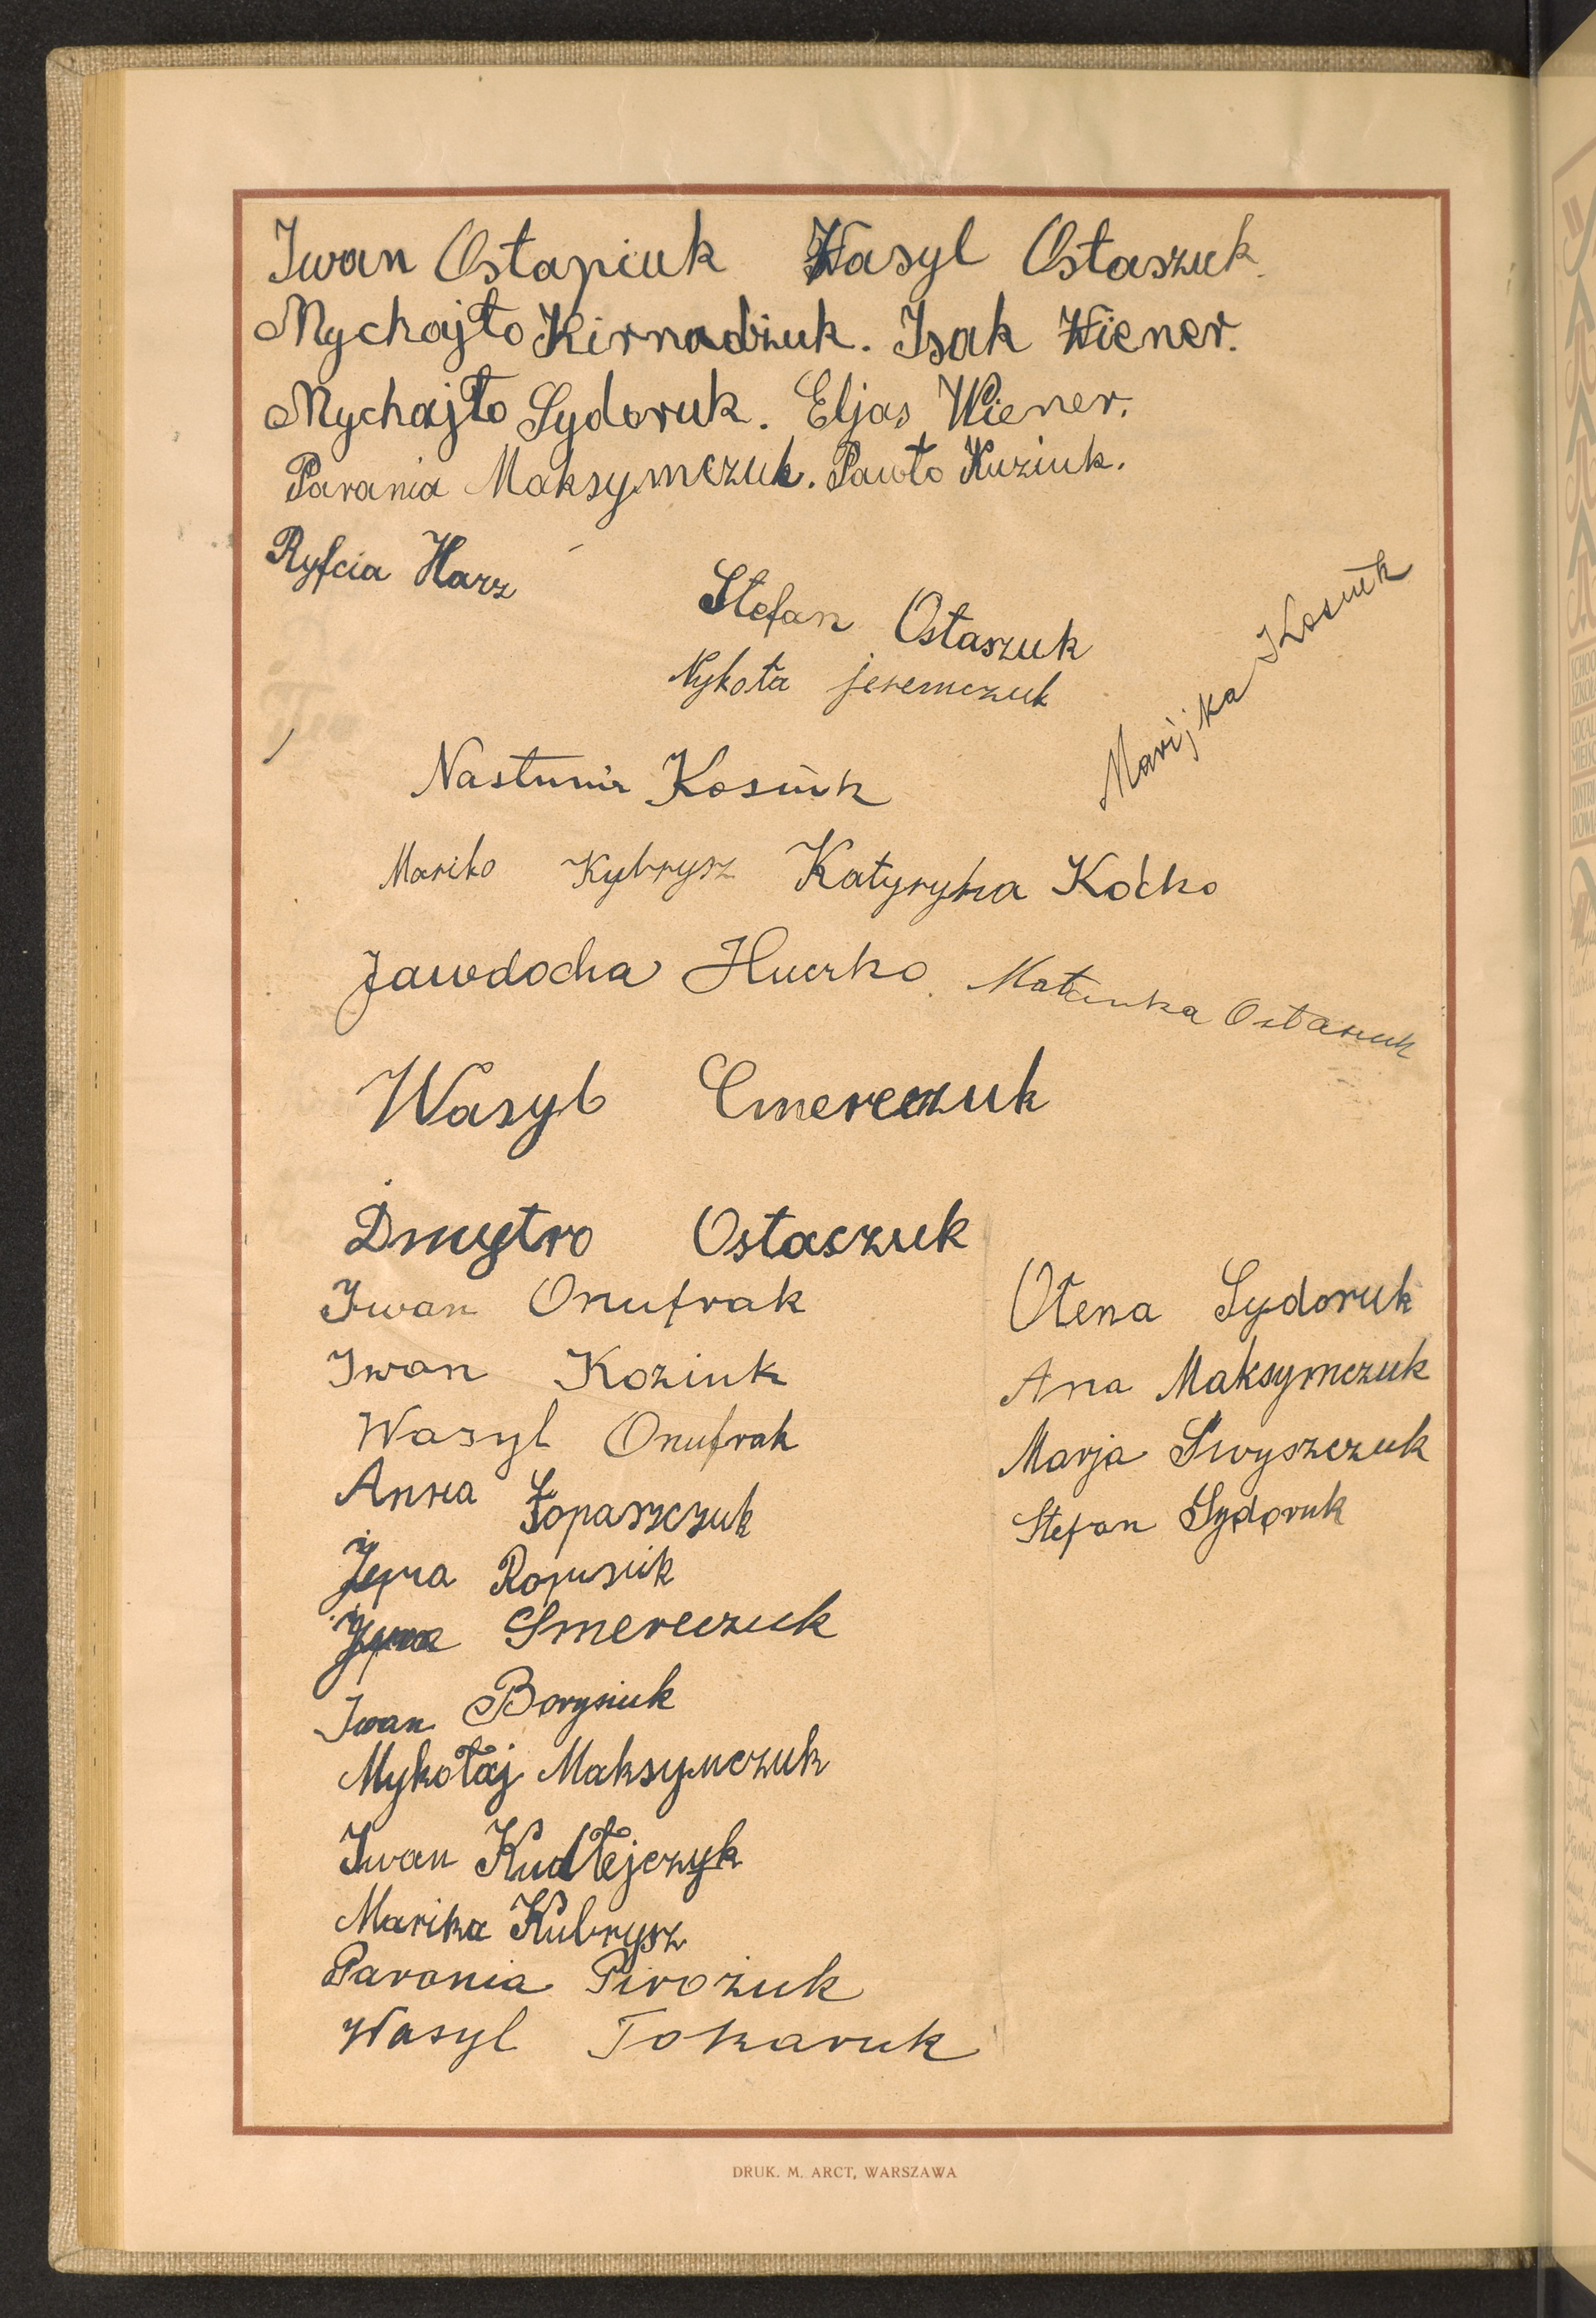 Iwan Ostapiuk Wasyl Ostaszuk.
Mychajło Kirnadźuk. Isak Wiener.
Mychajło Sydoruk. Eljas Wiener.
Parania Maksymczuk. Pawło Kuziuk.
Ryfcia Harz
Stefan Ostaszuk
Marijka Kosiuk
Nykoła jeremczuk
Nastunia Kosiuk
Mariko Kybrysz Katyryna Koćko
Jawdocha Hucrko. Małanka Ostasuk
Wasyl Cmereczuk
Dmytro Ostaszuk
Iwan Onufrak
Ołena Sydoruk
Iwan Koziuk
Ana Maksymczuk
Wasyl Onufrak
Marja Swyszczuk
Anna Łopaszczuk
Stefan Sydoruk
Ropusik
Smereczuk
Iwan Borysiuk
Mykołaj Maksymczuk
Iwan Kudłejczyk
Marika Kubrysz
Parania Pirożuk
Wasyl Tokaruk
DRUK. M. ARCT, WARSZAWA